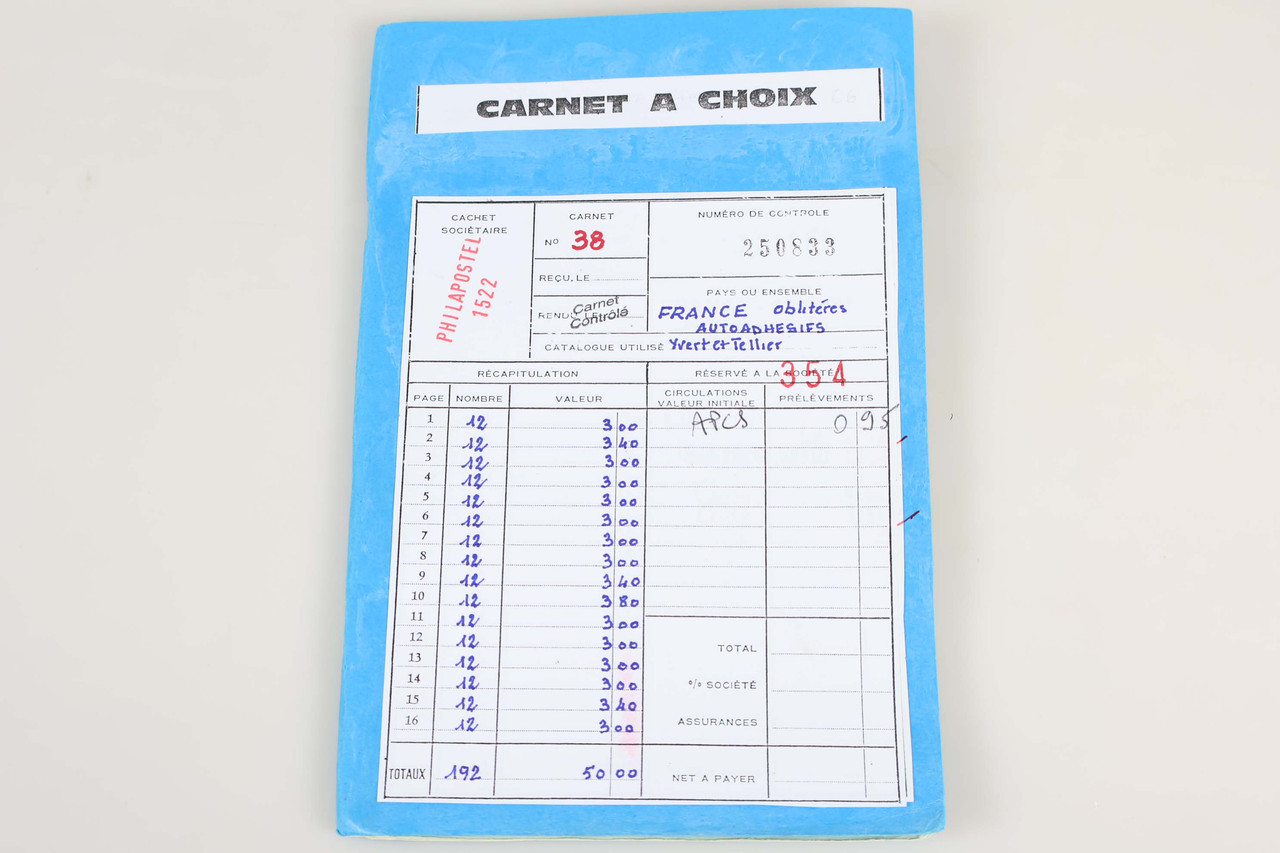 CARNET A CHOIX
CACHET SOCIÉTAIRE
PHILAPOSTEL
1522
CARNET
No 38
REÇU, LE
RENDU, LE
Carnet
Contrôlé
NUMÉRO DE CONTROLE
250833
PAYS OU ENSEMBLE
FRANCE oblitérés
AUTOADHESIFS
CATALOGUE UTILISÉ Yvert et Tellier
RÉCAPITULATION
RÉSERVÉ A LA SOCIÉTÉ
354
PAGE NOMBRE VALEUR
CIRCULATIONS
VALEUR INITIALE
PRÉLÈVEMENTS
1 12 3 00 APCS 0 95
2 12 3 40
3 12 3 00
4 12 3 00
5 12 3 00
6 12 3 00
7 12 3 00
8 12 3 00
9 12 3 40
10 12 3 80
11 12 3 00
12 12 3 00
13 12 3 00
14 12 3 00
15 12 3 40
16 12 3 00
TOTAL
% SOCIÉTÉ
ASSURANCES
TOTAUX 192 50 00
NET A PAYER